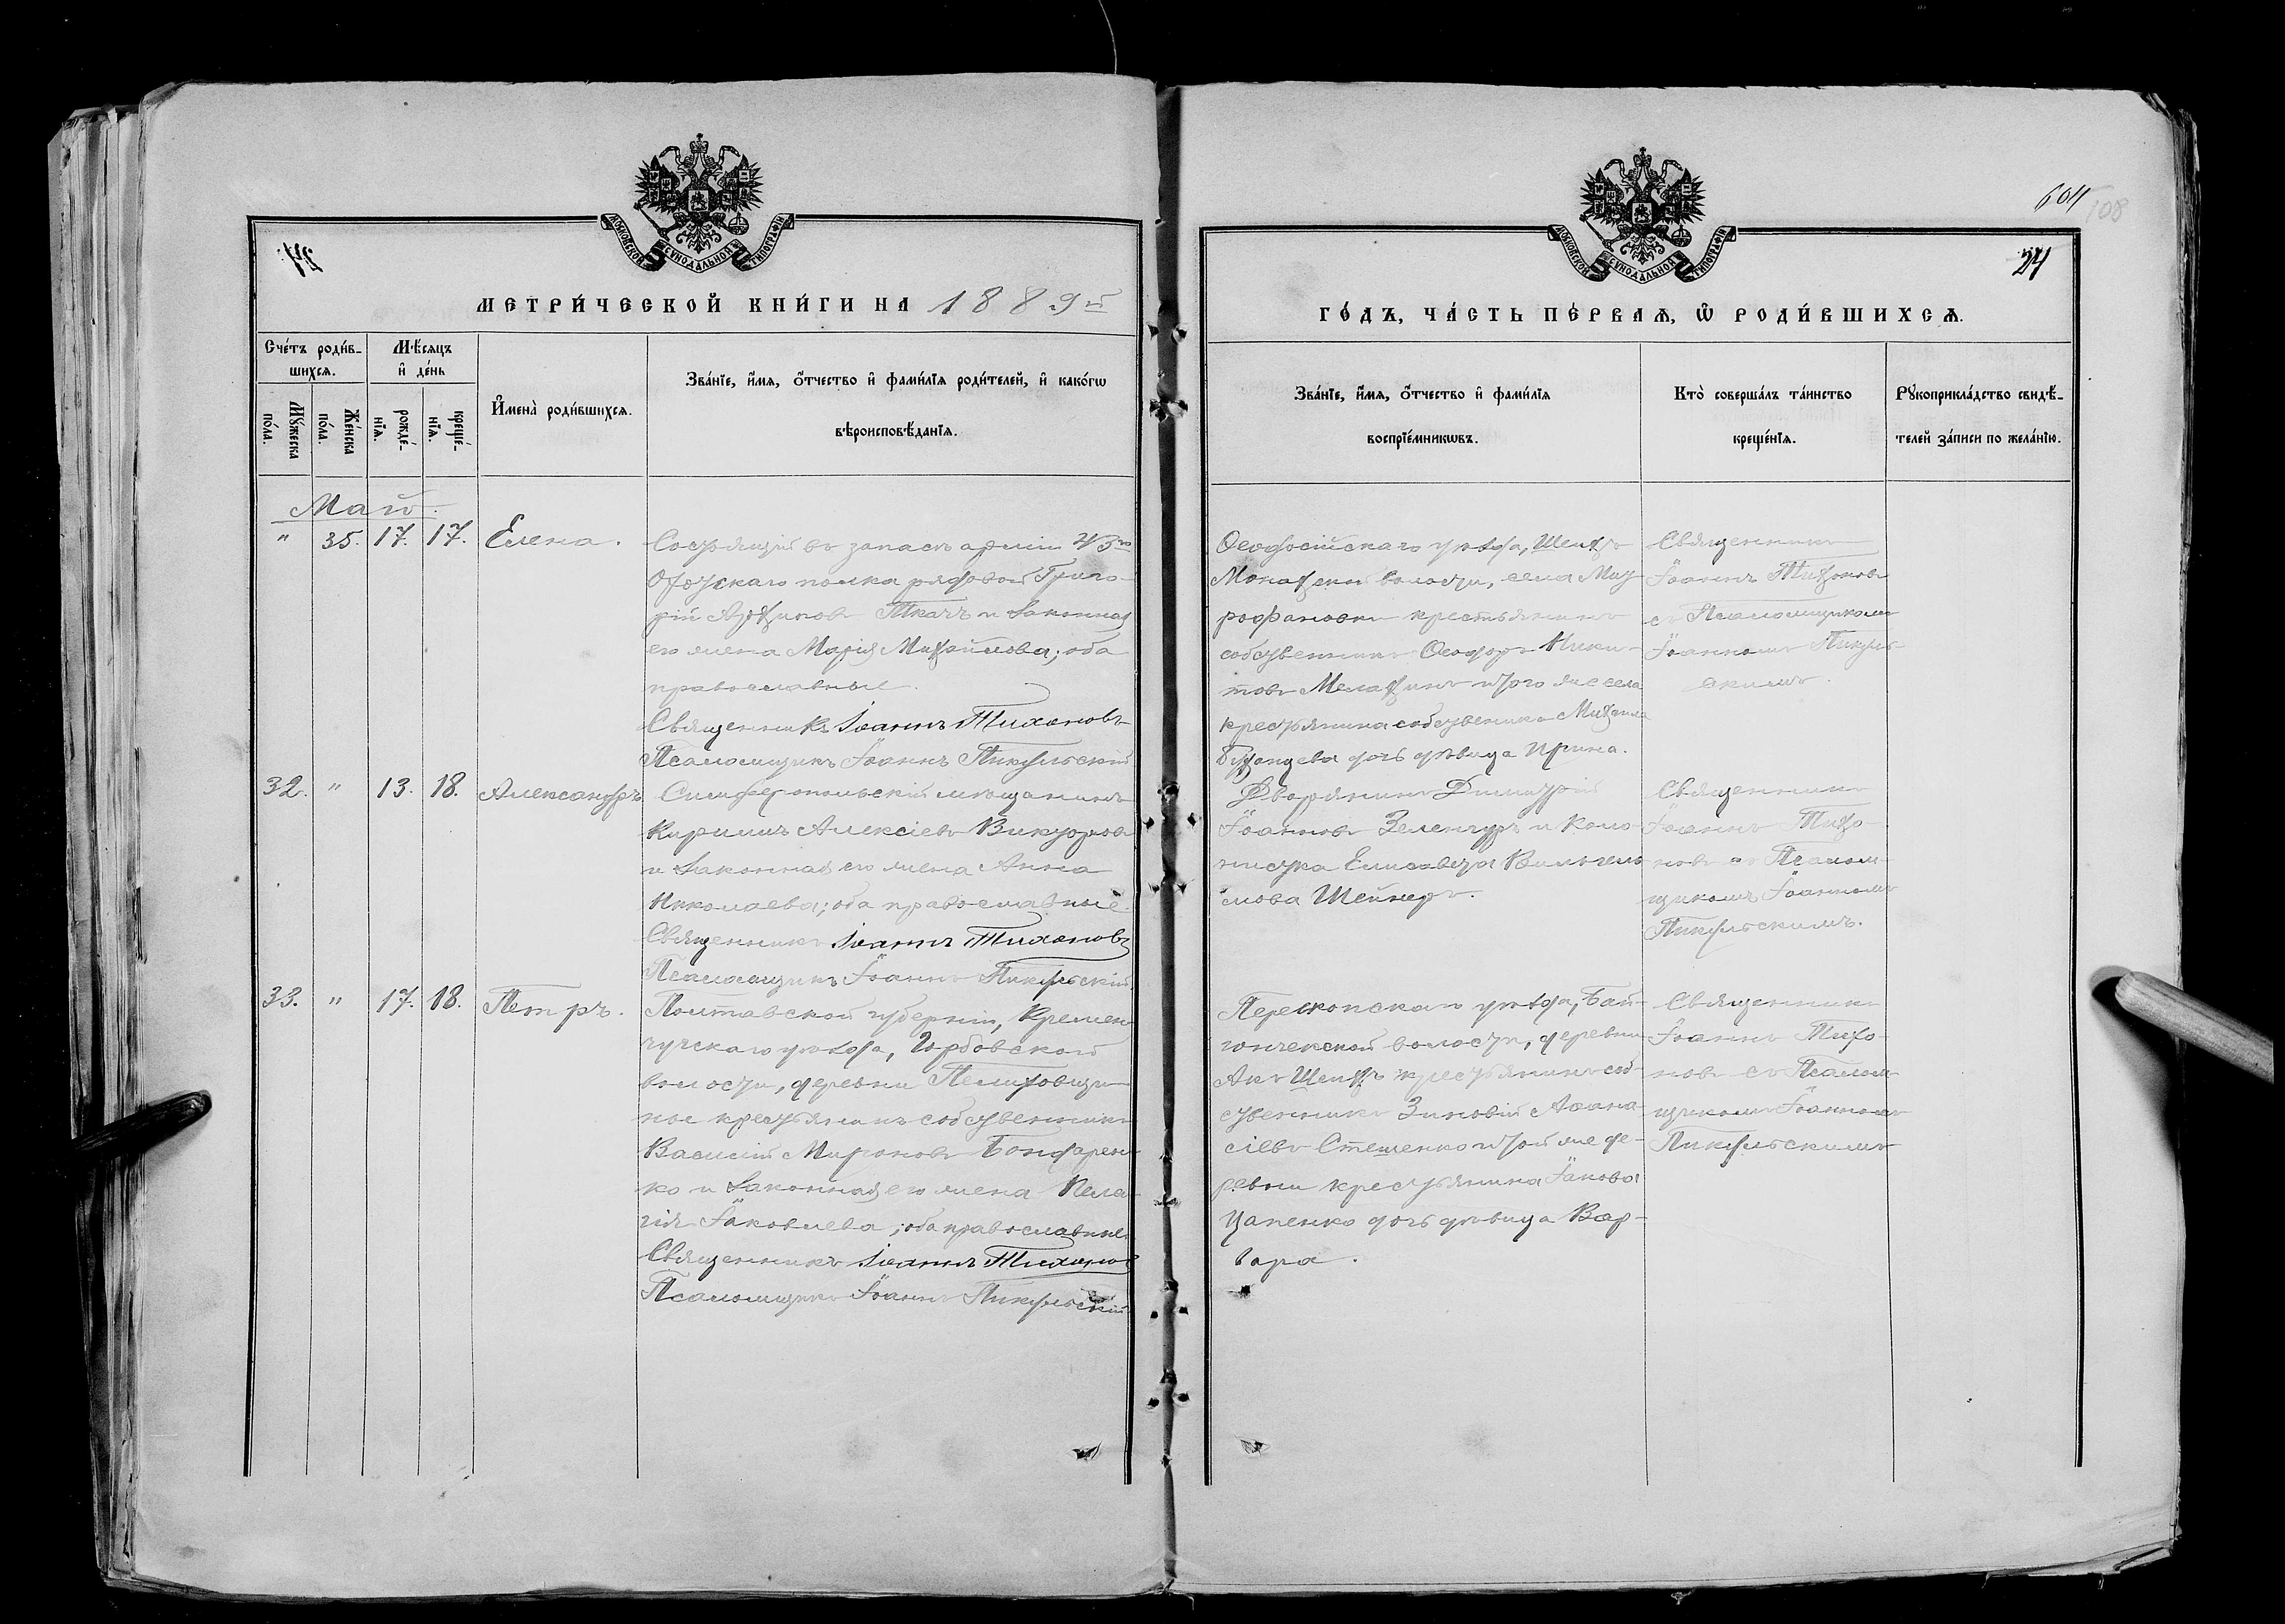 МОСКОВСКОЙ СѴНОДАЛЬНОЙ ТИПОГРАФІИ
МЕТРИ́ЧЕСКОЙ КНИ́ГИ НА 1889й
Сче́тъ роди́в-
шихсѧ.
Мѣ́сѧцъ
и҆ де́нь
Мꙋ́жеска
по́ла.
Же́нска
по́ла.
рожде́-
нїѧ.
креще́-
нїѧ.
И҆мена̀ роди́вшихсѧ.
Зва́нїе, и҆́мѧ, ѻ҆́тчество и҆ фами́лїѧ роди́телей, и҆ како́гѡ
вѣроисповѣ́данїѧ.
Май.
" 35. 17. 17. Елена.
Состоящій въ запасѣ арміи 43го
Охотскаго полка рядовой Григо-
рій Ткачъ и законная
его жена Марія Михайлова; оба
православные.
Священникъ Іоаннъ Тихоновъ
Псаломщикъ Іоаннъ Пикульскій
32. " 13. 18. Александръ
Симферопольскій мѣщанинъ
Кириллъ Алексіевъ Викторовъ
и законная его жена Анна
Николаева; оба православные
Священникъ Іоаннъ Тихоновъ
Псаломщикъ Іоаннъ Пикульскій
33. " 17. 18. Петръ.
Полтавской губерніи, Кремен-
чугскаго уѣзда,
волости, деревни
крестьянинъ собственникъ
Василій Мироновъ Бондарен-
ко и законная его жена Пела-
гія Іаковлева; оба православные
Священникъ Іоаннъ Тихоновъ
Псаломщикъ Іоаннъ Пикульскій
МОСКОВСКОЙ СѴНОДАЛЬНОЙ ТИПОГРАФІИ
604
108
24
ГО́ДЪ, ЧА́СТЬ ПЕ́РВАѦ, Ѽ РОДИ́ВШИХСѦ.
Зва́нїе, и҆́мѧ, ѻ҆́тчество и҆ фами́лїѧ
воспрїе́мникѡвъ.
Кто̀ соверша́лъ та́инство
креще́нїѧ.
Рꙋкоприкла́дство свидѣ́-
телей за́писи по жела́нїю.
Ѳеодосійскаго уѣзда, Шейхъ
Монахской волости, села Мит-
рофановки крестьянинъ
собственникъ Ѳеодоръ Ники-
товъ и того же села
крестьянина собственика Михаила
дочь дѣвица Ирина.
Священникъ
Іоаннъ Тихоновъ
съ Псаломщикомъ
Іоанномъ Пикуль-
скимъ.
Дворянинъ Димитрій
Іоанновъ и Коло-
нистка Елисавета Вильгель-
мова
Священникъ
Іоаннъ Тихо-
новъ съ Псалом-
щикомъ Іоанномъ
Пикульскимъ.
Перекопскаго уѣзда,
волости, деревни
Акъ Шейхъ крестьянинъ соб-
ственникъ Зиновій Аѳана-
сіевъ Стешенко и той же де-
ревни крестьянина Іакова
Цапенко дочь дѣвица Вар-
вара.
Священникъ
Іоаннъ Тихо-
новъ съ Псалом-
щикомъ Іоанномъ
Пикульскимъ